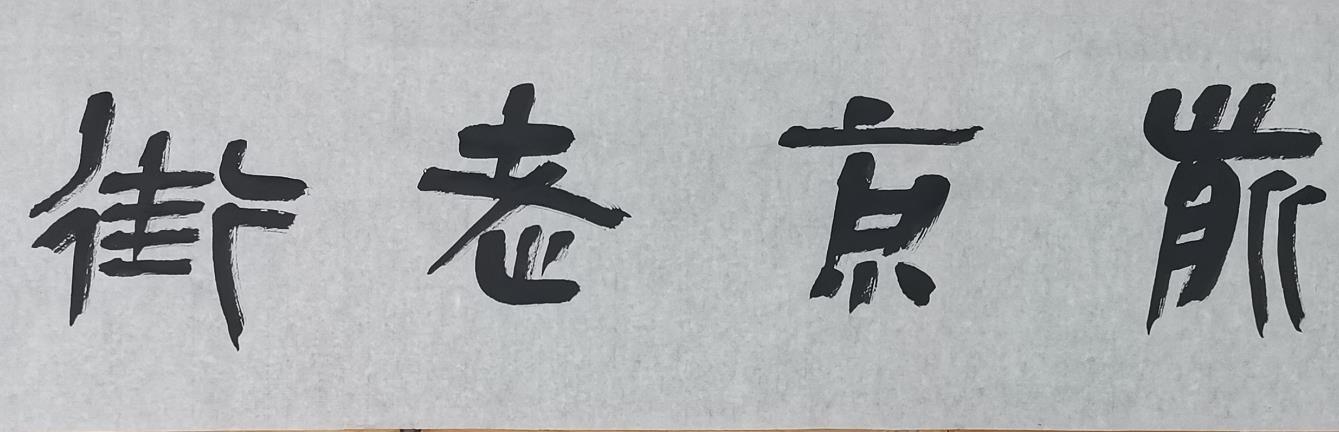 前京老街